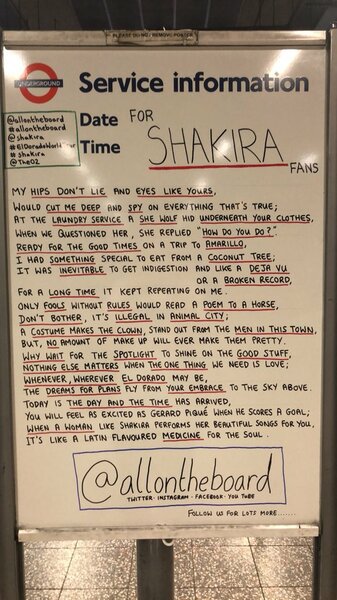 PLEASE DO NOT REMOVE POSTER
UNDERGROUND
Service information
@allontheboard
#allontheboard
@shakira
#ElDoradoWorldTour
#shakira
@TheO2
Date FOR
Time SHAKIRA
FANS
MY HIPS DON'T LIE AND EYES LIKE YOURS,
WOULD CUT ME DEEP AND SPY ON EVERYTHING THAT'S TRUE;
AT THE LAUNDRY SERVICE A SHE WOLF HID UNDERNEATH YOUR CLOTHES,
WHEN WE QUESTIONED HER, SHE REPLIED "HOW DO YOU DO?"
READY FOR THE GOOD TIMES ON A TRIP TO AMARILLO,
I HAD SOMETHING SPECIAL TO EAT FROM A COCONUT TREE;
IT WAS INEVITABLE TO GET INDIGESTION AND LIKE A DEJA VU
OR A BROKEN RECORD,
FOR A LONG TIME IT KEPT REPEATING ON ME.
ONLY FOOLS WITHOUT RULES WOULD READ A POEM TO A HORSE,
DON'T BOTHER, IT'S ILLEGAL IN ANIMAL CITY;
A COSTUME MAKES THE CLOWN, STAND OUT FROM THE MEN IN THIS TOWN,
BUT, NO AMOUNT OF MAKE UP WILL EVER MAKE THEM PRETTY.
WHY WAIT FOR THE SPOTLIGHT TO SHINE ON THE GOOD STUFF,
NOTHING ELSE MATTERS WHEN THE ONE THING WE NEED IS LOVE;
WHENEVER, WHEREVER EL DORADO MAY BE,
THE DREAMS FOR PLANS FLY FROM YOUR EMBRACE TO THE SKY ABOVE.
TODAY IS THE DAY AND THE TIME HAS ARRIVED,
YOU WILL FEEL AS EXCITED AS GERARD PIQUÉ WHEN HE SCORES A GOAL;
WHEN A WOMAN LIKE SHAKIRA PERFORMS HER BEAUTIFUL SONGS FOR YOU,
IT'S LIKE A LATIN FLAVOURED MEDICINE FOR THE SOUL.
@allontheboard
TWITTER · INSTAGRAM · FACEBOOK · YOU TUBE
FOLLOW US FOR LOTS MORE.......